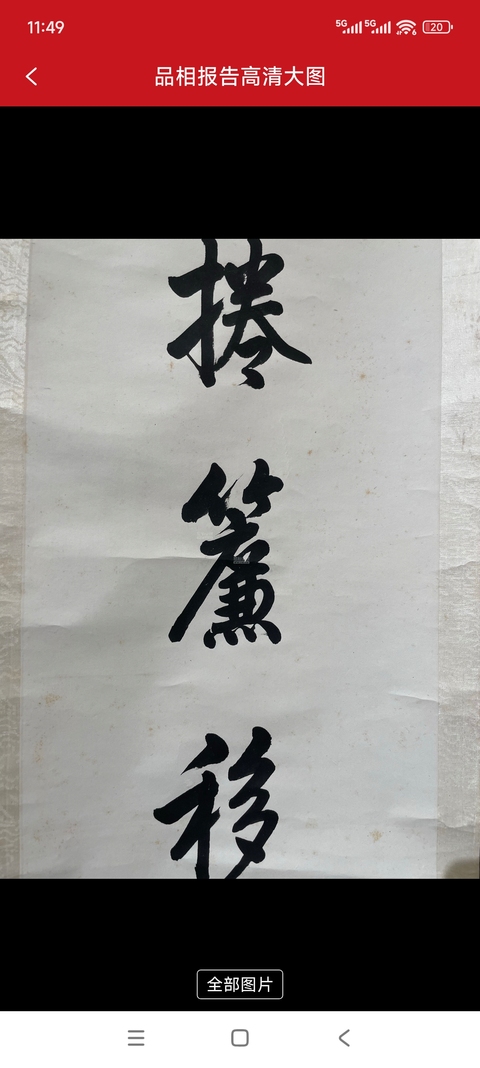 11:49
5G 5G 20
品相报告高清大图
捲
簾
移
全部图片